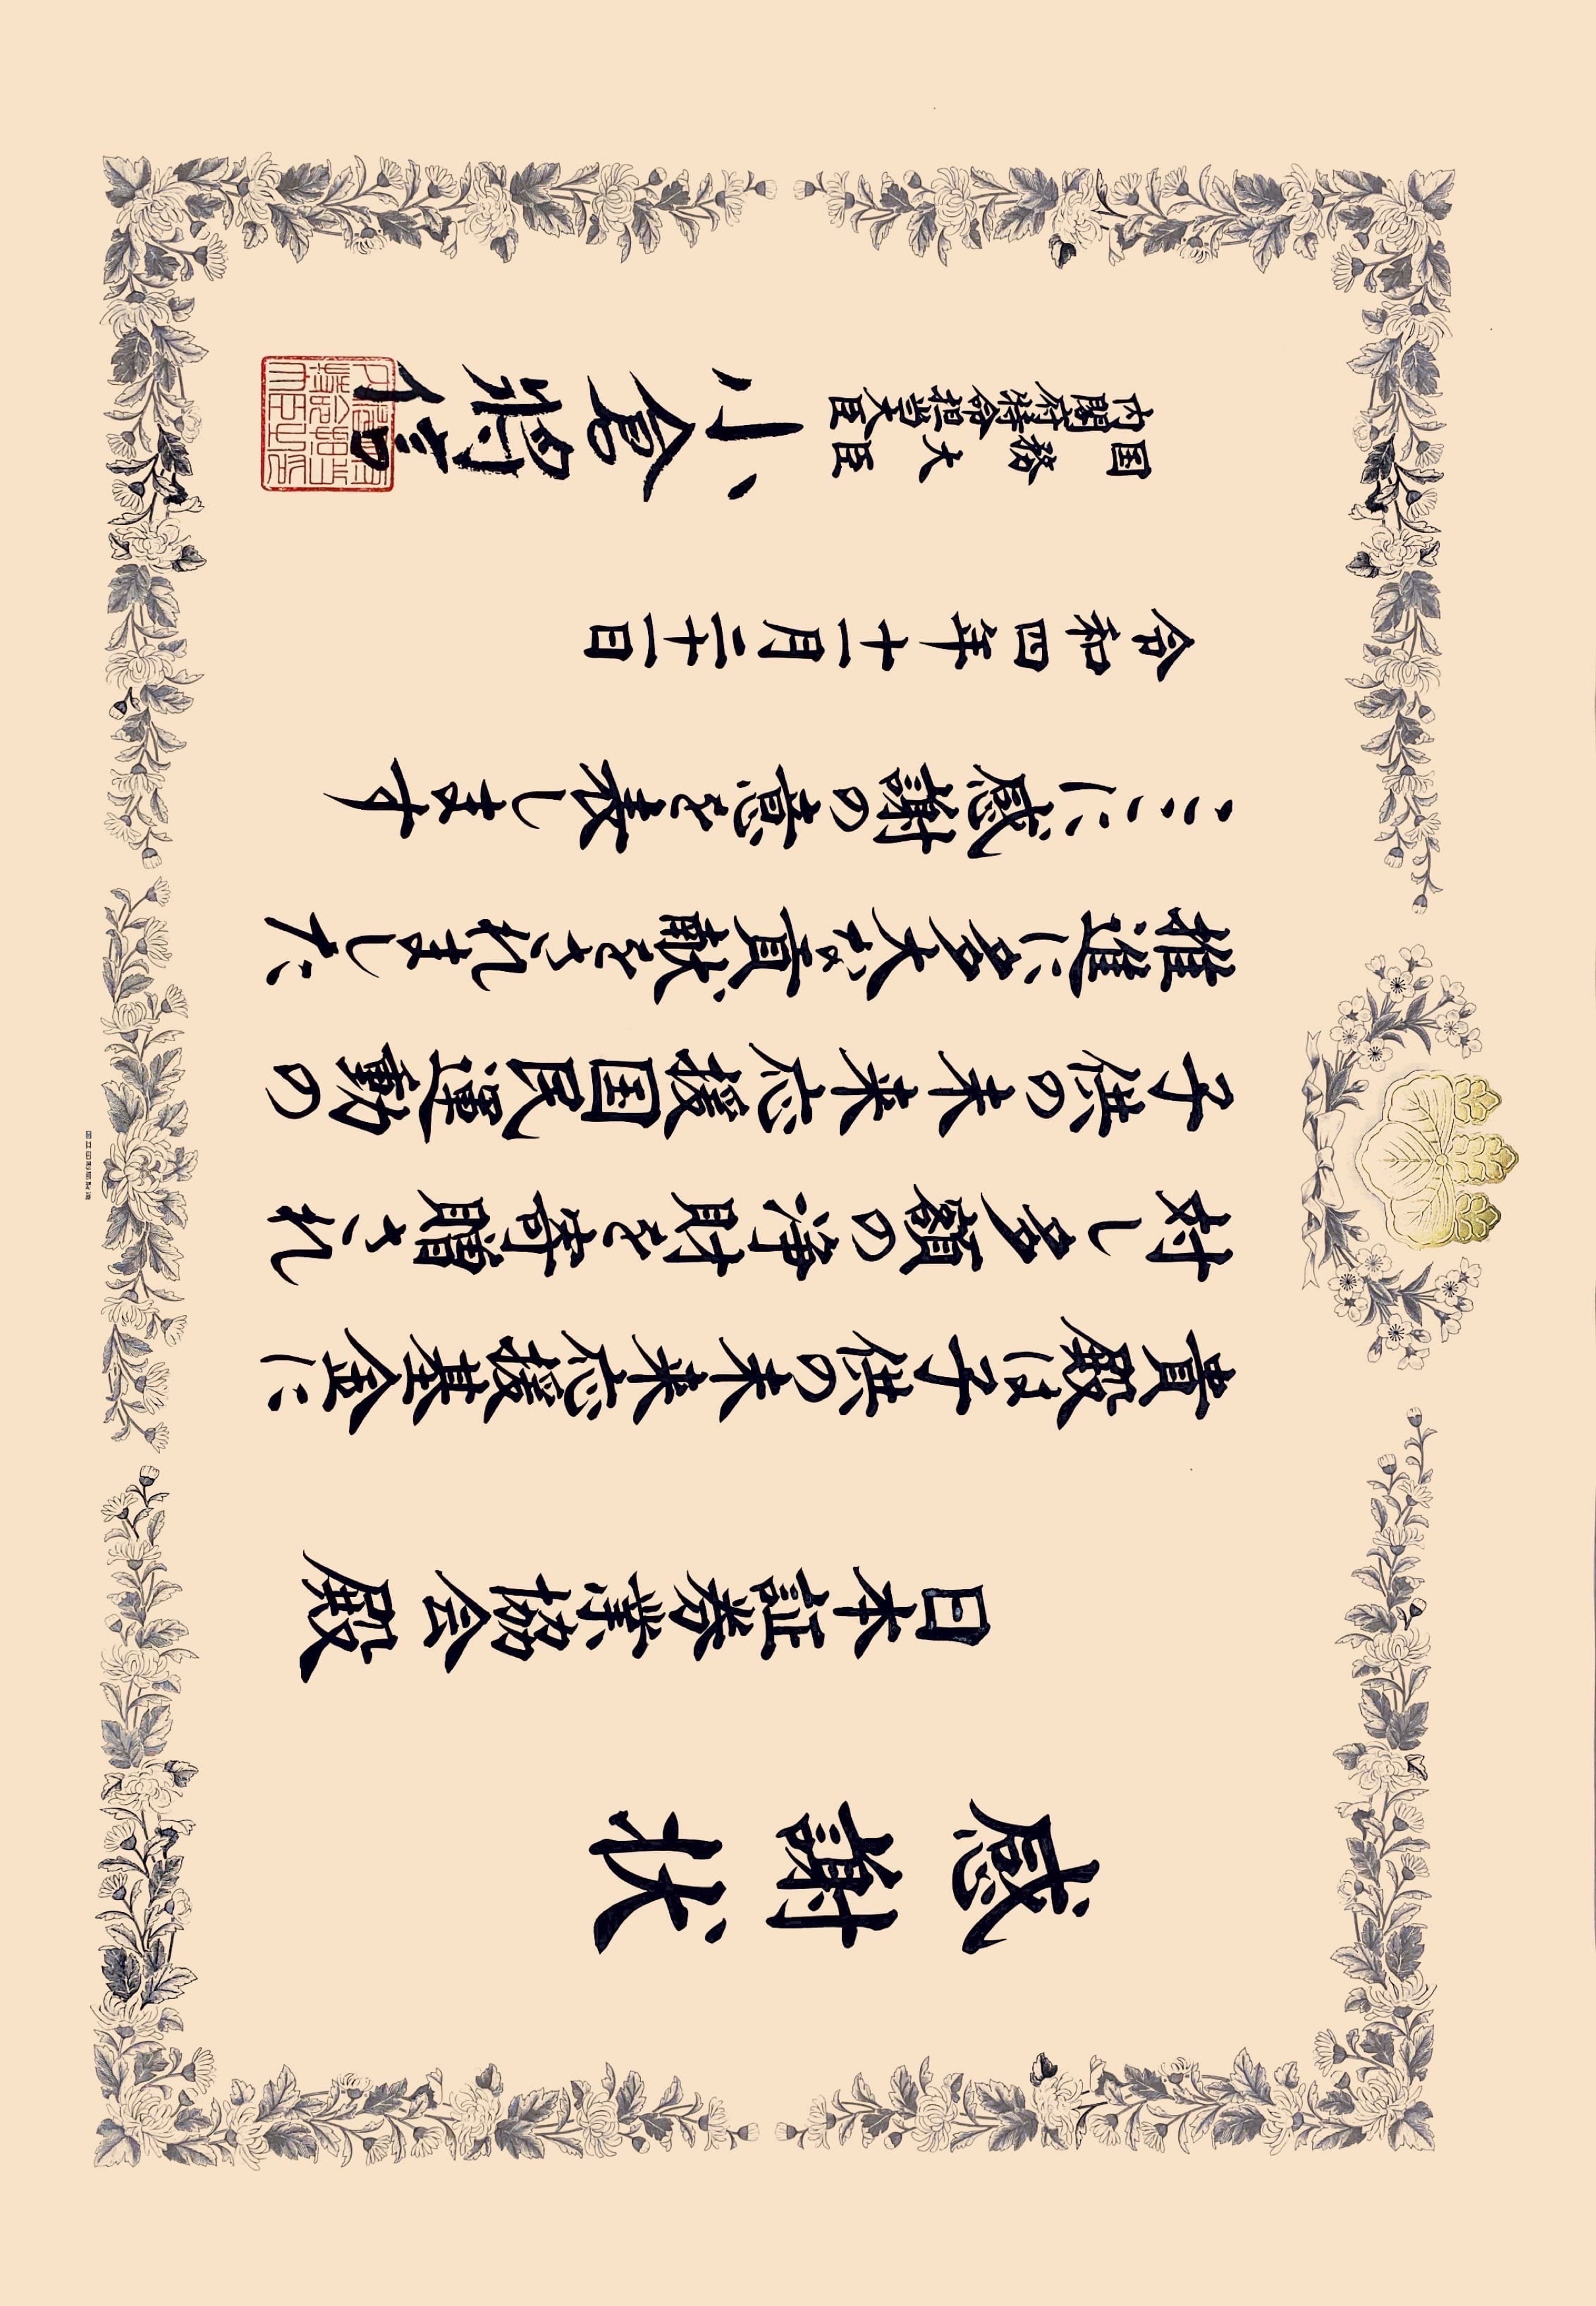 感謝状
日本証券業協会殿
貴殿は子供の未来応援基金に
対し多額の浄財を寄贈され
子供の未来応援国民運動の
推進に多大な貢献をされました
ここに感謝の意を表します
令和四年十一月二十一日
国務大臣
内閣府特命担当大臣
小倉將信